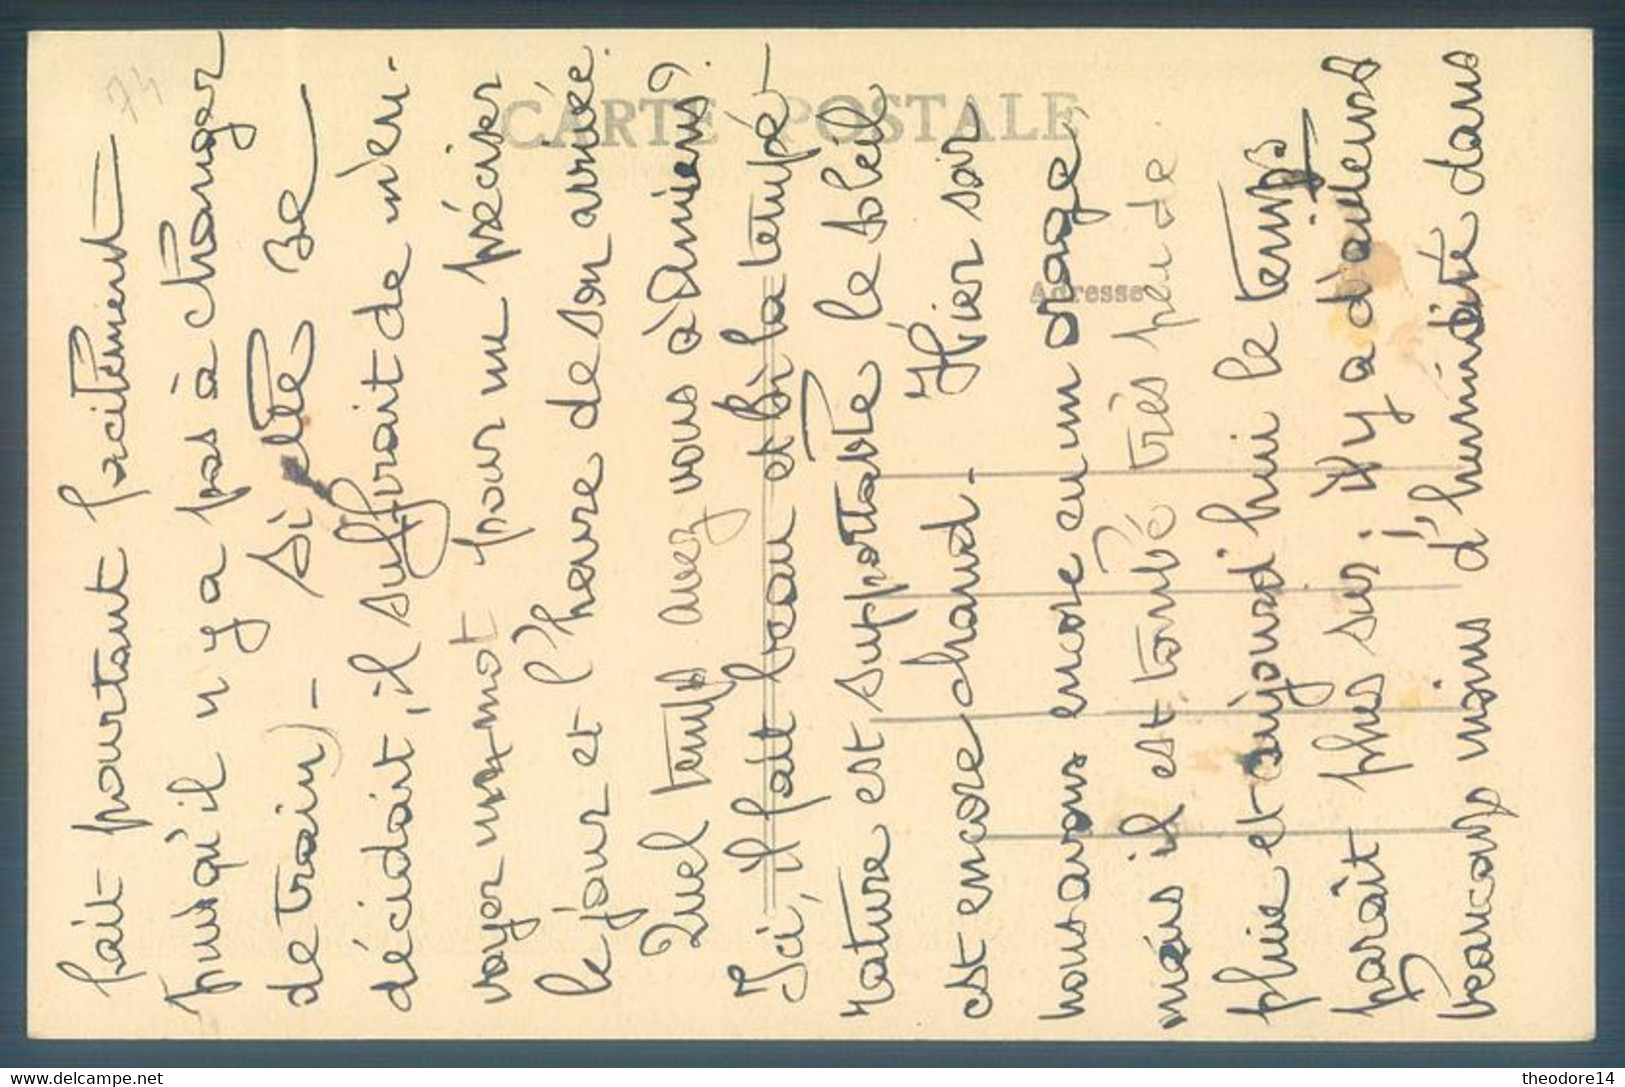 fait pourtant facilement
puisqu'il n'y a pas à changer
de train) - Si elle se
décidait, il suffirait de m'en-
voyer un mot pour me préciser
le jour et l'heure de son arrivée.
Quel temps avez vous à Amiens?
Ici, il fait beau et si la tempé-
rature est supportable le soleil
est encore chaud - Hier soir
nous avons encore eu un orage,
mais il est tombé très peu de
pluie et aujourd'hui le temps
paraît plus sûr; il y a d'ailleurs
beaucoup moins d'humidité dans
l'
74
CARTE POSTALE
Adresse
theodore14